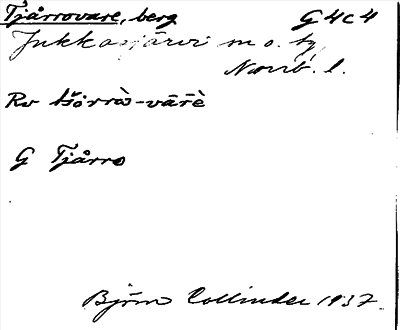 Tjårrovare, berg G4c4
Jukkasjärvi m o. ty
Norrb. l.
Rv tšårrɔ̀-vārè
G Tjårro
Björn Collinder 1937.